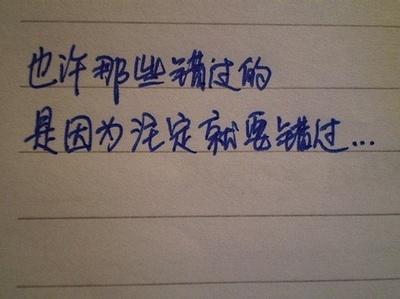 也许那些错过的
是因为注定就要错过...